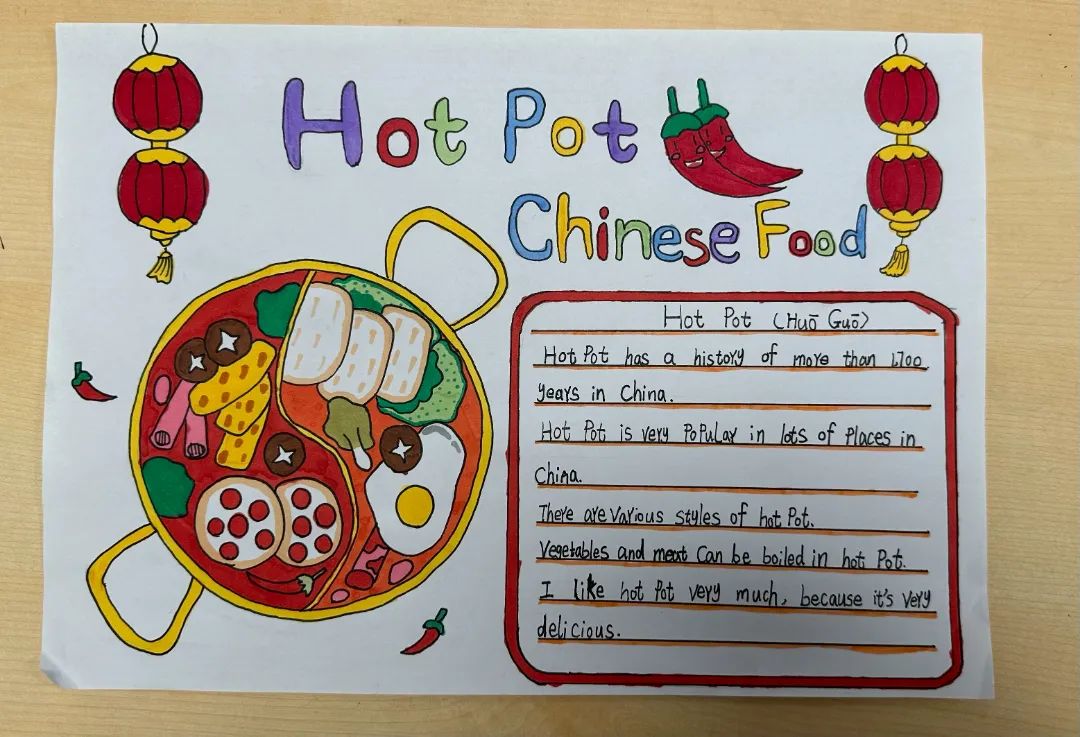 Hot Pot
Chinese Food
Hot Pot (Huō Guō)
Hot Pot has a history of more than 1,700
years in China.
Hot Pot is very Popular in lots of Places in
China.
There are various styles of hot Pot.
Vegetables and meat Can be boiled in hot Pot.
I like hot Pot very much, because it's very
delicious.